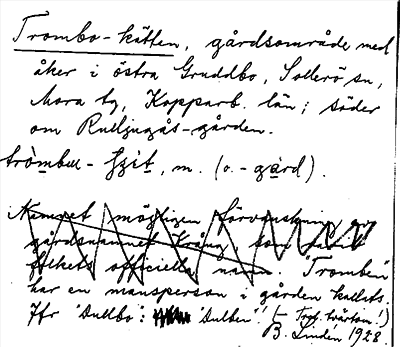 Trombo-kätten, gårdsområde med
åker i östra Gruddbo, Sollerö sn,
Mora tg, Kopparb. län; söder
om Rulljugås-gården.
tròmbuɩ - , m. (o. - gård).
Namnet möjligen förvanskning
gårdsnamnet , som
folkets officiella namn. 'Tromben'
har en mansperson i gården kallats.
Jfr 'Dullbo': 'Dulben'! (- Trol. tvärtom!)
B. Lindén 1928.